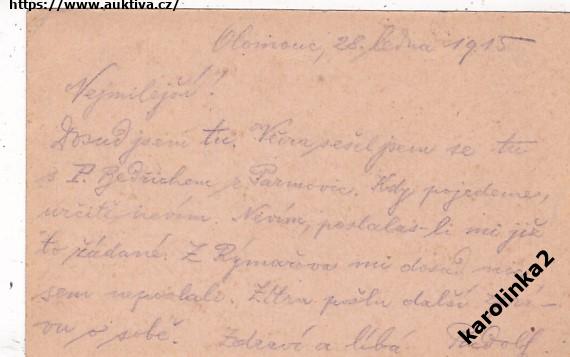 https://www.auktiva.cz/
Olomouc, 28. ledna 1915
Nejmilejší!
Dosud jsem tu. Včera sešel jsem se tu
s P. Bedřichem z Parmovic. Kdy pojedeme,
určitě nevím. Nevím, poslalas-li mi již
to žádané. Z Rýmařova mi dosud
sem neposlali. Zítra pošlu další
vu o sobě. Zdraví a líbá Rudolf
karolinka2